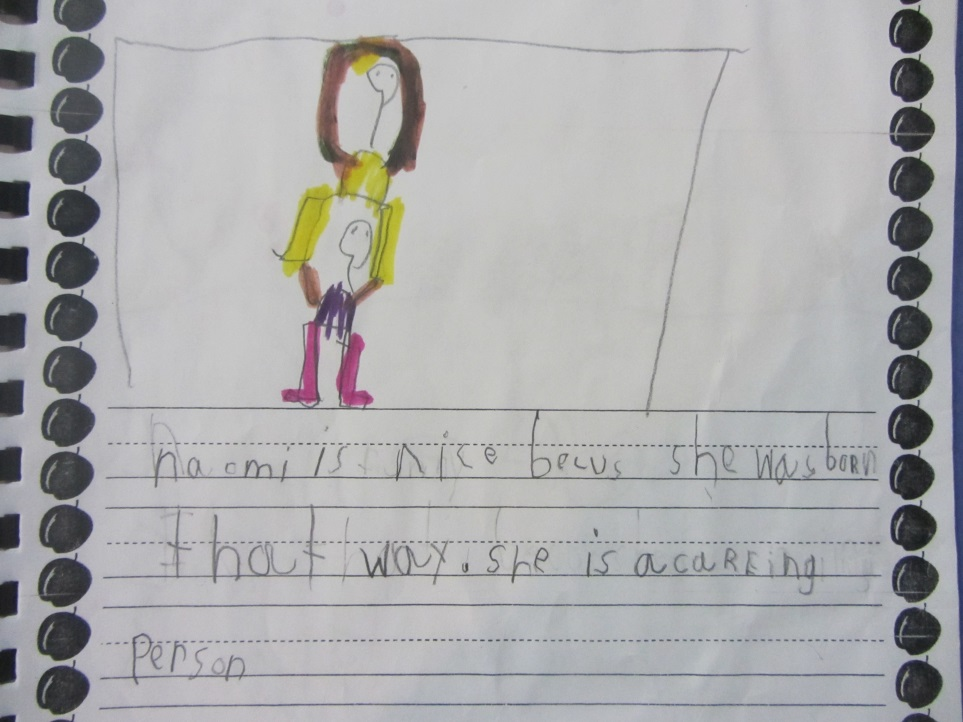 naomi is nice becus she was born
that way. she is a careing
Person